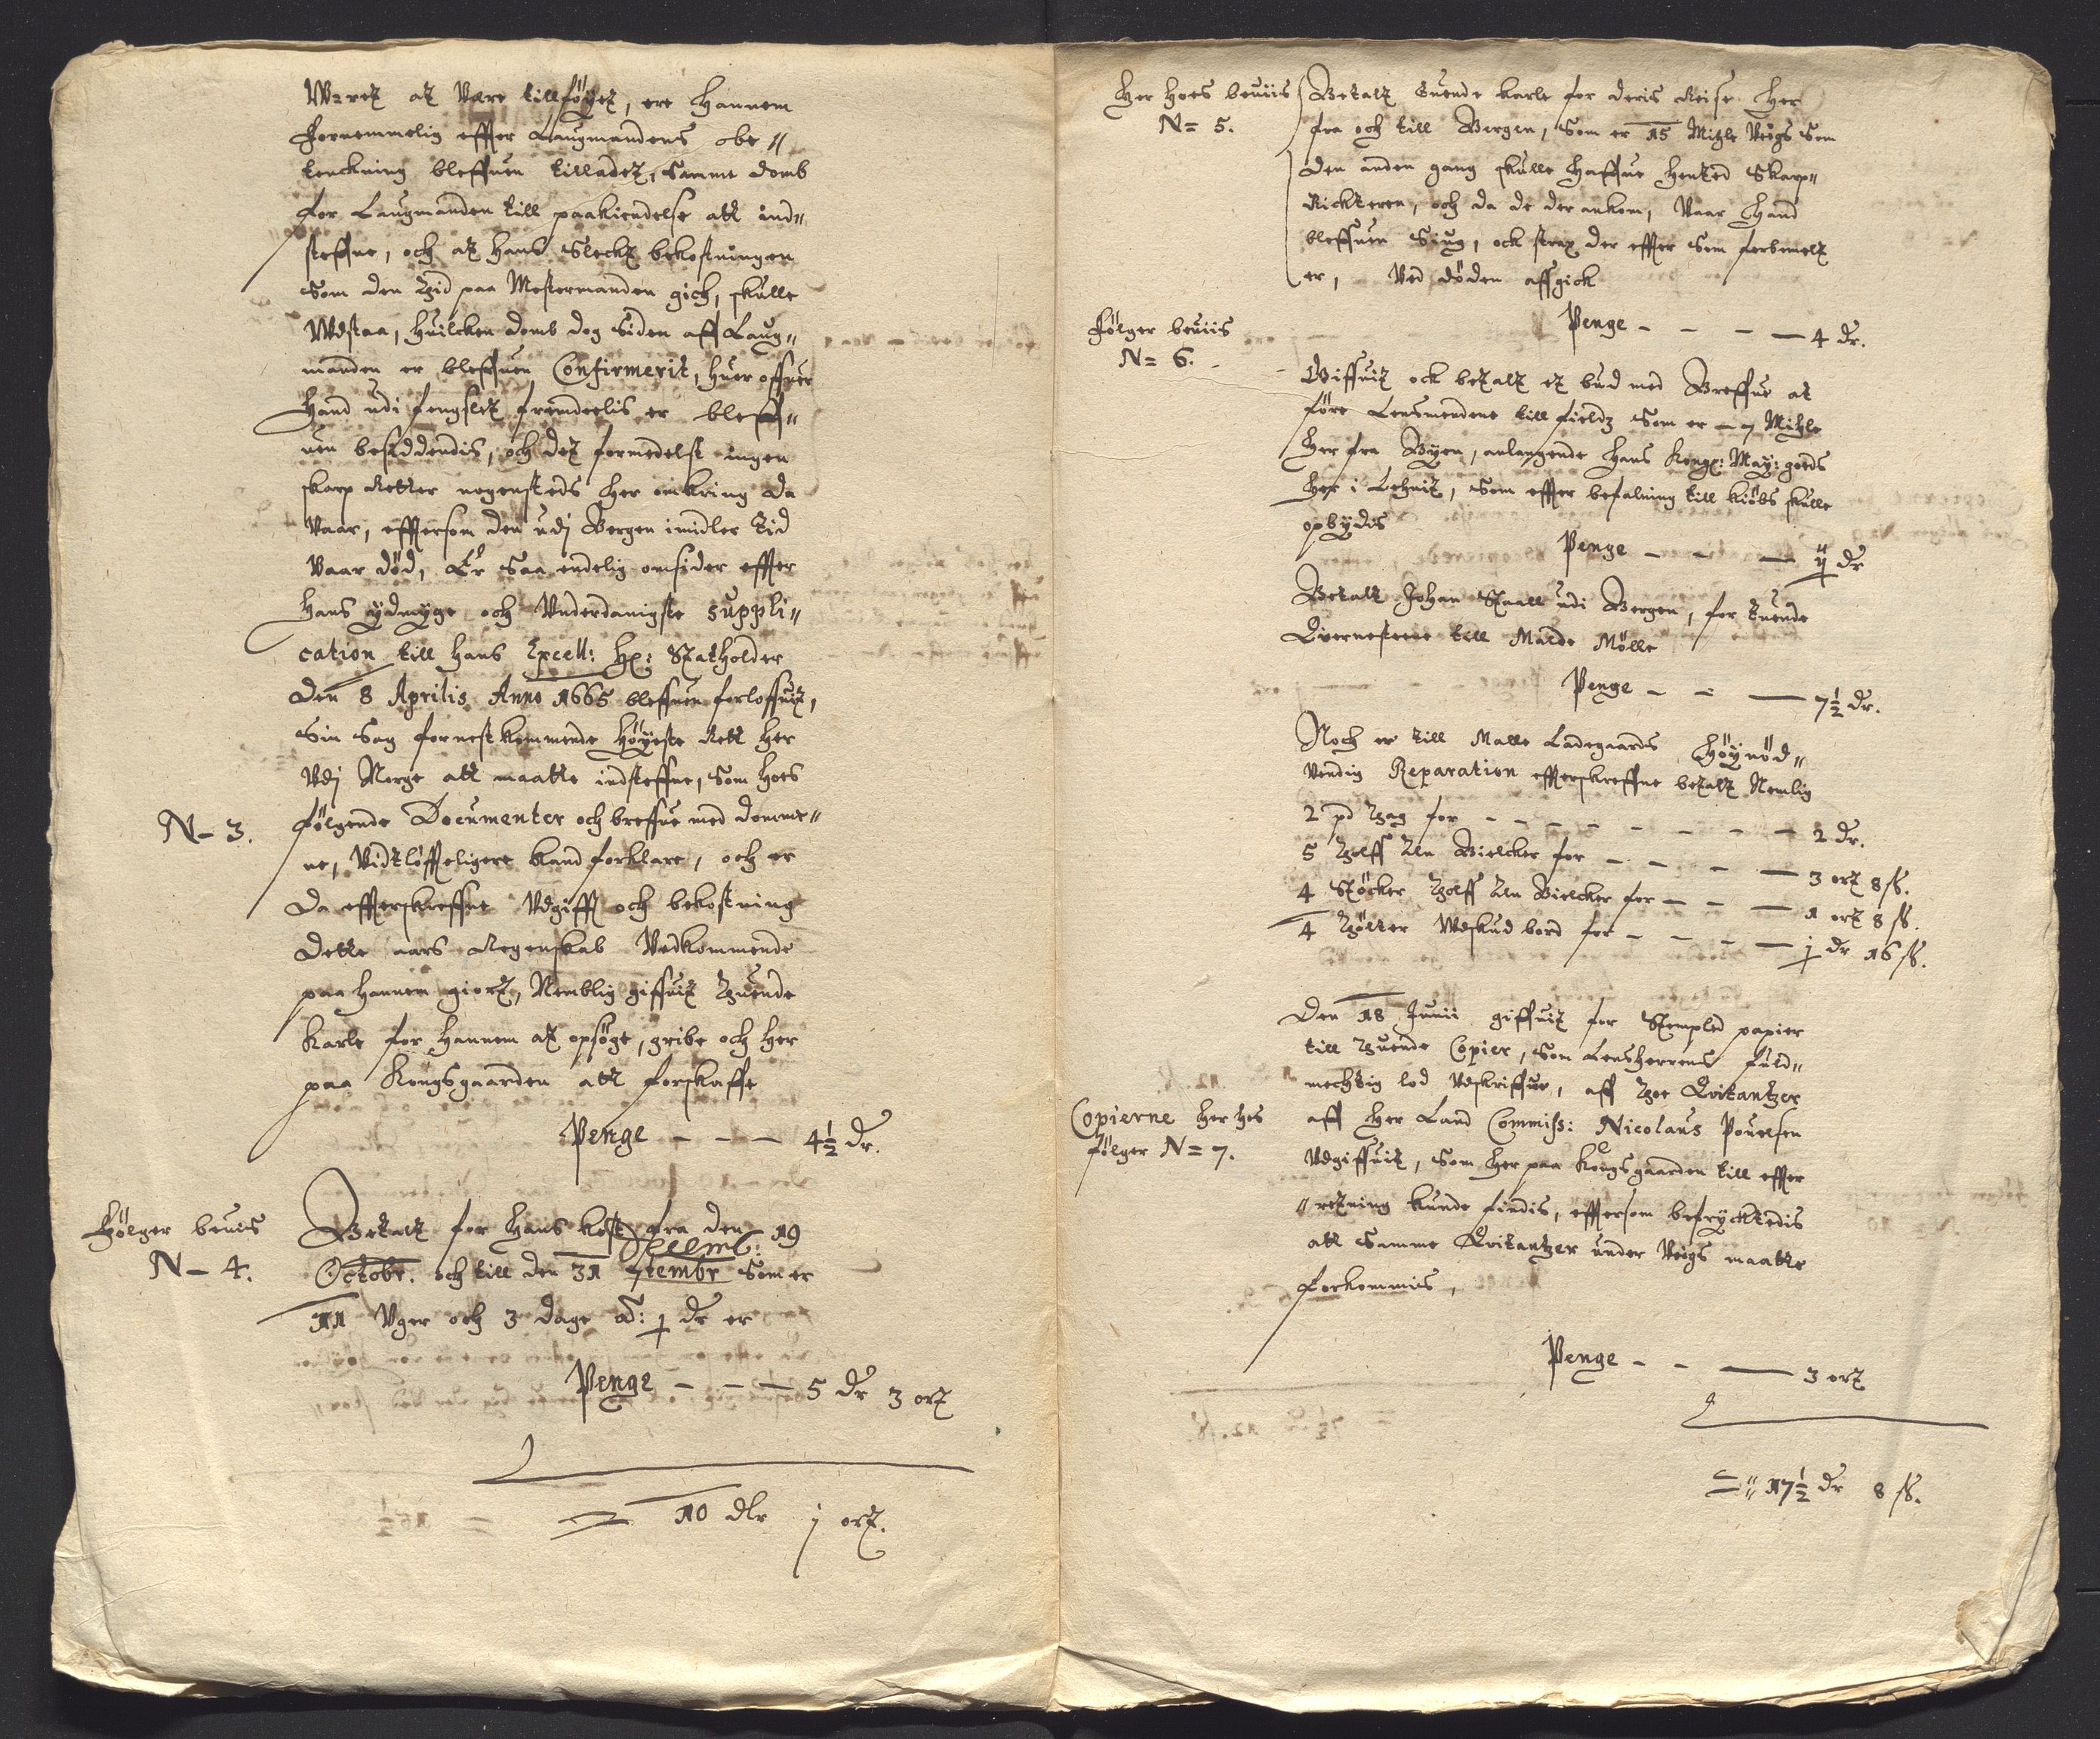 Wret at Være tillföyet, ere hannem
fornemmelig effter Laugmandens obe//
tenckning bleffuen tilladet, Samme domb
for Laugmanden till paakiendelse att ind//
steffne, och at hans Slecht bekostningen
Som den tid paa Mestermanden gich, skulle
Udstaa, huilcken domb dog Siden aff Laug//
manden er bleffuen Confirmerit, huor offuer
Hand udi fengslet fremdeelis er bleff//
uen besiddendis, och det formedelst ingen
skarp Retter nogensteds her omkring da
Vaar, effterson den udj Bergen imidler tid
Vaar död, Er Saa endelig omsider effter
Hans ydmyge och Underdanigste suppli//
cation till hans Excell: Hr: Statholder
Den 8 Aprilis Anno 1665 bleffuen forloffuit,
Sin Sag for nest kommende Höyeste Rett her
Udj Norge att maatte indsteffne, Som hoes
N- 3. fölgende Documenter och breffue med domme//
ne, Vidtlöffteligere kand forklare, och er
Da effterskreffne Udgifft och bekostning
Dette aars Regenskab Vedkommende
paa hannem giort, Nemblig giffuit tuende
Karle for hannem at opsöge, gribe och her
paa Kongsgaarden att forskaffe
Penge - - - 4½ dr.
Fölger beuis
N- 4.
Betalt for hans kost fra den 19
Decemb:
Octobr. och till den 31 7tembr Som er
11 Uger och 3 dage à: ½ dr er
Penge - - - 5 dr 3 ort
= 10 dlr j ort.
Her hoes beuiis
N= 5.
Betalt tuende karle for deris Reise her
fra och till Bergen, Som er 15 Mihle Veigs Som
Den anden gang skulle haffue hented Skarp//
Richteren, och da de der ankom, Vaar hand
bleffuen Siug, och strax der effter Som forbemelt
er, Ved döden affgick
Penge - - - - 4 dr.
Fölger beuiis
N= 6.
Giffuit och betalt et bud med Breffue at
före Lensmendene till fieldz Som er - 7 Mihle
Her fra Byen, anlangende Hans Kongl: May: gods
her i Lehnit, Som effter befalning till kiöbs skulle
opbydis
Penge - - - ½ dr
Betalt Johan Staall udi Bergen, for tuende
Quernesteene till Malde Mölle
Penge - - - 7½ dr.
Noch er till Malle Ladegaards Höynöd//
Vendig Reparation effterskreffne betalt Nemlig
2 pd tag for - - - - - - - - 2 dr.
5 tolff Aln Bielcker for - - - - - 3 ort 8 ß.
4 Stöcker tolff Aln Bielcker for - - - 1 ort 8 ß.
4 tölter Udskud bord for - - - - j dr 16 ß.
Den 18 Junii giffuit for Stempled papier
till tuende Copier, Som Lensherrens fuld//
mechtig lod Udskriffue, aff toe Qvitantzer
Copierne her hos
fölger N= 7.
aff her Land Commiss: Nicolaus Pouelsen
Udgiffuit, Som her paa Kongsgaarden till effter
//retning kunde findis, effterson befrycktedis
att Samme Qvitantzer under Veigs maatte
forkommis,
Penge - - - 3 ort
= 17½ dr 8 ß.